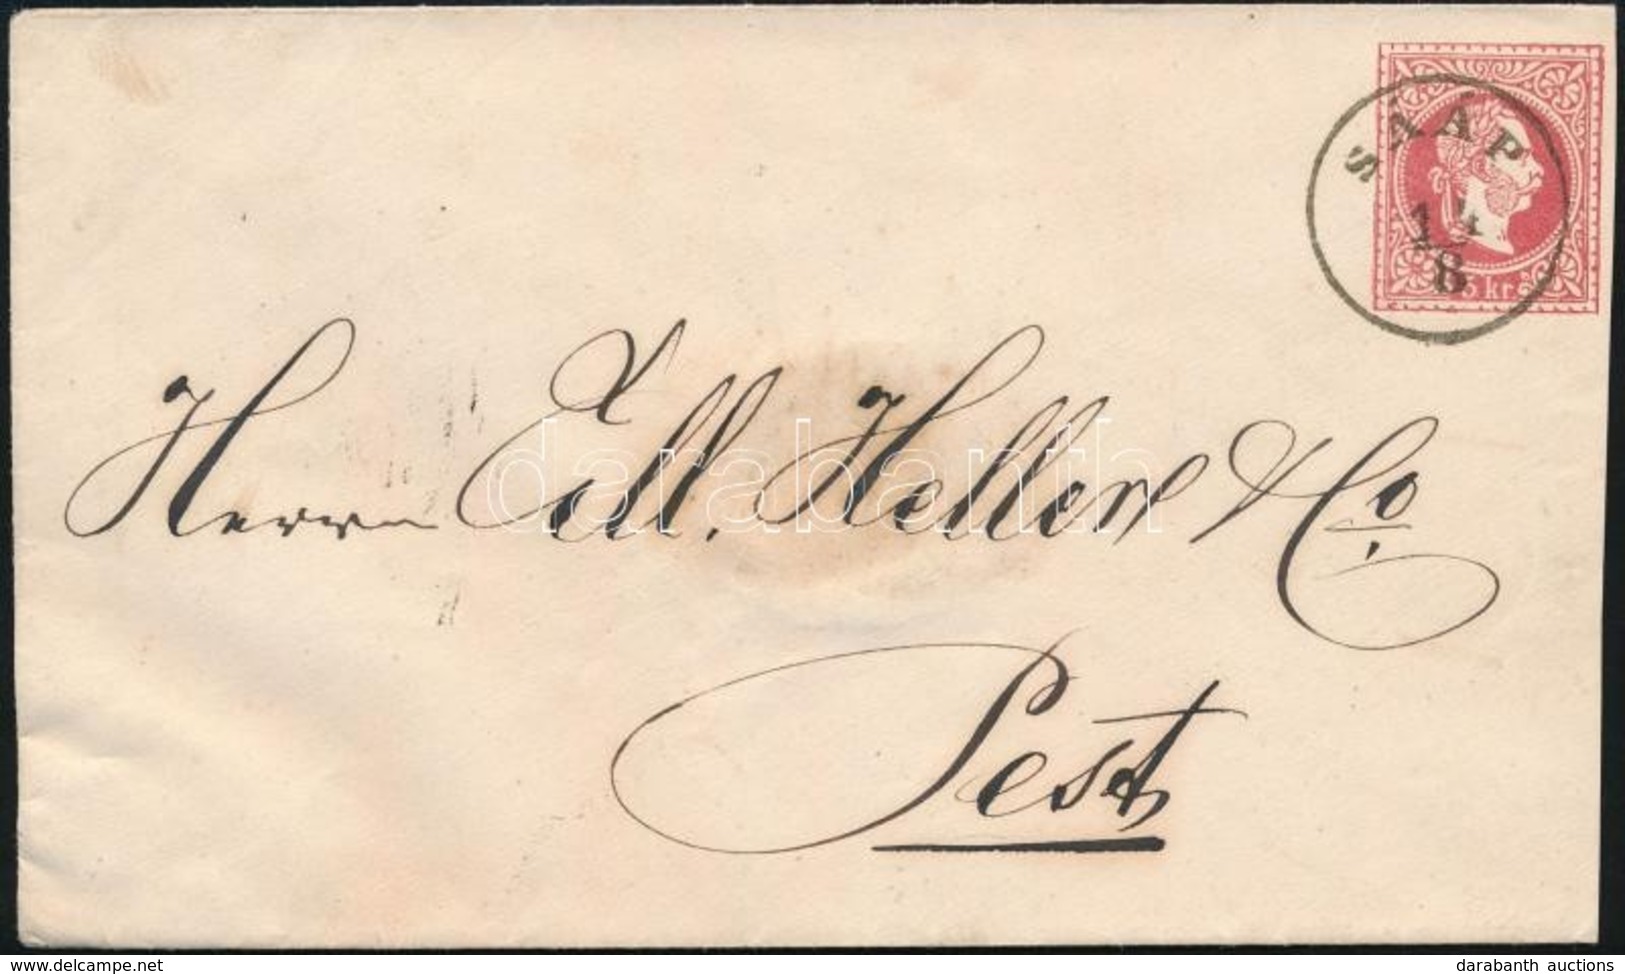 SÁÁP
14
8
5 kr.
Herrn Edl. Heller & Co.
Pest
darabanth
www.delcampe.net
darabanth auctions